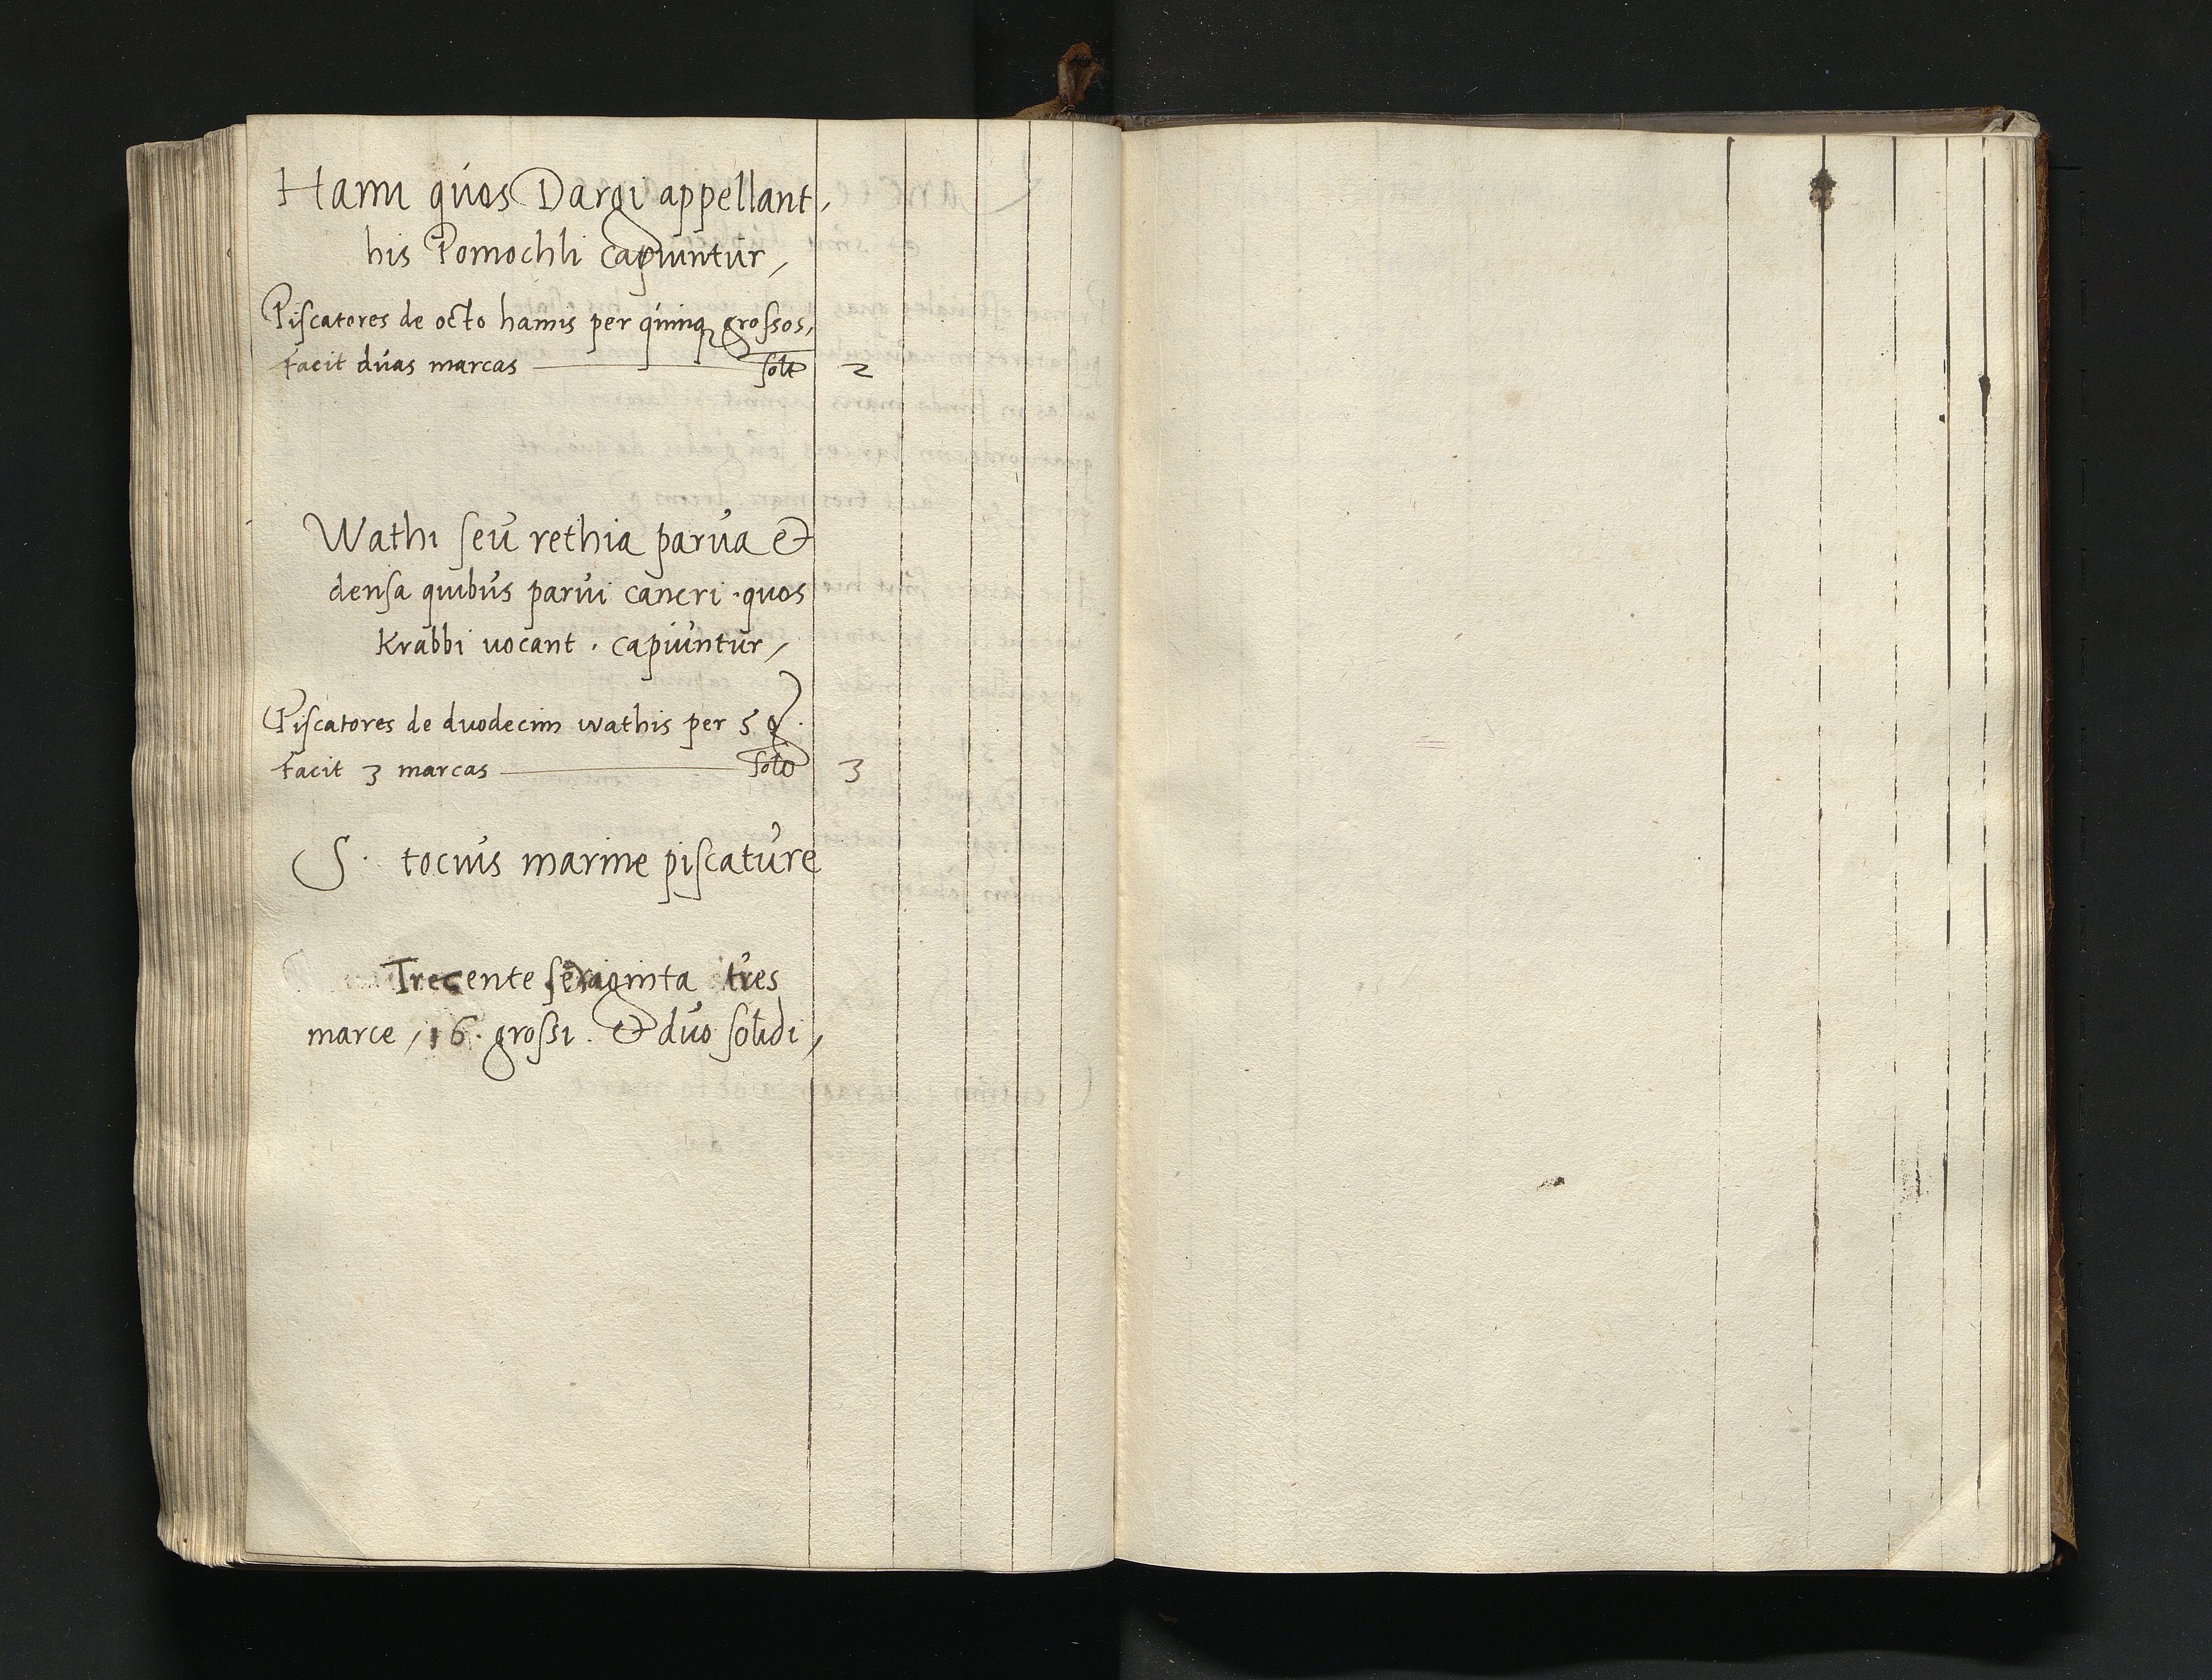 Hami quos Dargi appellant,
his Pomochli capiuntur,
Piscatores de octo hamis per quinq grossos,
facit duas marcas solt 2
Wathi seu rethia parua et
densa quibus parui cancri quos
Krabbi uocant . capiuntur,
Piscatores de duodecim wathis per 5 g.
facit 3 marcas solt 3
S. tocius marine piscature
Trecente sexaginta tres
marce, 16. grossi . et duo solidi,